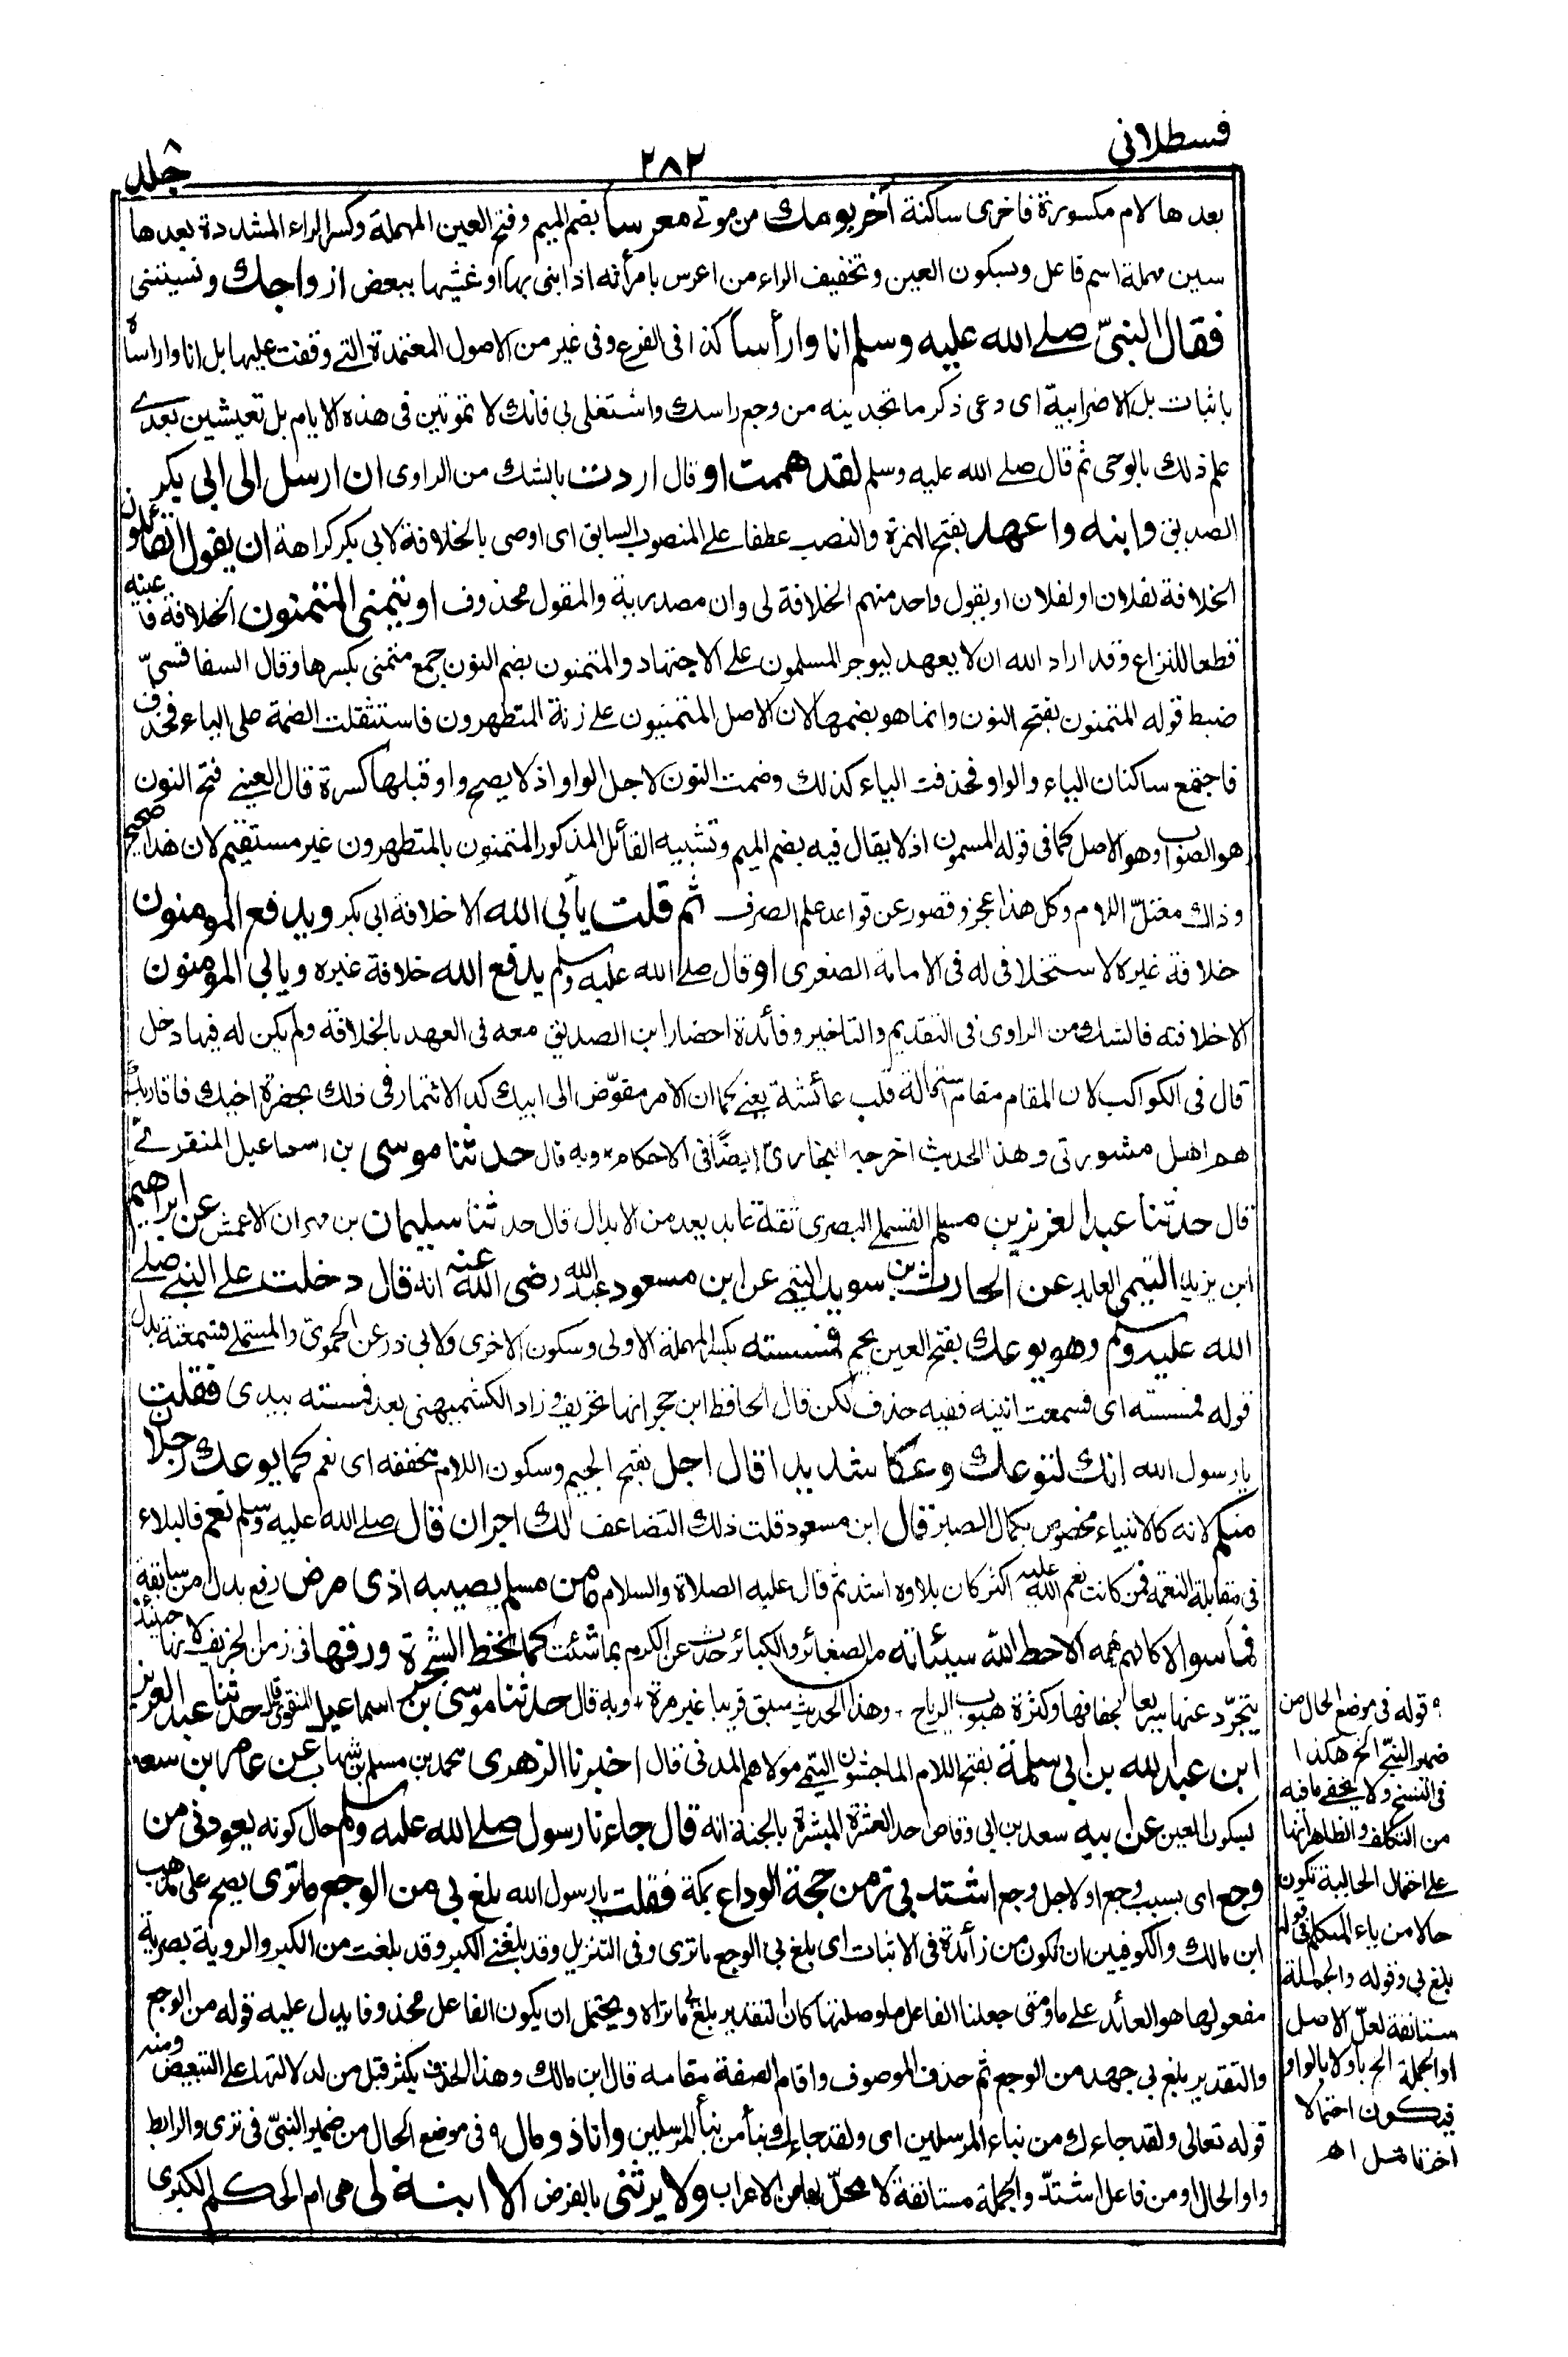 قسطلاني
٢٨٢
جلد ٨
بعدها لام مكسورة فاخرى ساكنة آخر يومك من موتي معرسا بضم الميم وفتح العين المهملة وكسر الراء المشددة بعدها
سين مهملة اسم فاعل وبسكون العين وتخفيف الراء من اعرس بامرأته اذا بنى بها او غشيها ببعض ازواجك ونسيتني
فقال النبيّ صلى الله عليه وسلم انا وارأساه كذا في الفرع وفي غير من الاصول المعتمدة التي وقفت عليها بل انا واراساه
باثبات بل الاضرابية اى دعى ذكر ما تجدينه من وجع راسك واشتغلى بي فانك لا تموتين في هذه الايام بل تعيشين بعدى
علم ذلك بالوحى ثم قال صلى الله عليه وسلم لقد هممت او قال اردت بالشك من الراوى ان ارسل الى ابي بكر
الصديق وابنه واعهد بفتح الهمزة والنصب عطفا على المنصوب السابق اى اوصى بالخلافة لابي بكر كراهة ان يقول القائلون
الخلافة لفلان او لفلان او يقول واحد منهم الخلافة لى وان مصدرية والمقول محذوف او يتمنى المتمنون الخلافة فاعينه
قطعا للنزاع وقد اراد الله ان لا يعهد ليوجر المسلمون على الاجتهاد والمتمنون بضم النون جمع متمنى بكسرها وقال السفاقسىّ
ضبط قوله المتمنون بفتح النون وانما هو بضمها لان الاصل المتمنيون على زنة المتطهرون فاستثقلت الضمة على الياء فحذف
فاجتمع ساكنان الياء والواو فحذفت الياء كذلك وضمت النون لاجل الواو اذ لا يصح واو قبلها كسرة قال العينى فتح النون
هو الصواب وهو الاصل كما في قوله المسمون اذ لا يقال فيه بضم الميم وتشبيه القائل المذكور المتمنون بالمتطهرون غير مستقيم لان هذا صحيح
وذاك معتلّ اللام وكل هذا عجز وقصور عن قواعد علم الصرف ثم قلت يأبى الله الا خلافة ابي بكر ويدفع المومنون
خلافة غيره لاستخلافى له فى الامامة الصغرى او قال صلى الله عليه وسلم يدفع الله خلافة غيره ويابى المومنون
الا خلافته فالشك من الراوى فى التقديم والتاخير وفائدة احضار ابن الصديق معه فى العهد بالخلافة ولم يكن له فيها دخل
قال فى الكواكب لان المقام مقام استمالة قلب عائشة يعنى كما ان الامر مفوّض الى ابيك كذا الائتمار فى ذلك بحضرة اخيك فاقاربك
هم اهل مشورتى وهذا الحديث اخرجه البخارىّ ايضًا فى الاحكام * وبه قال حدثنا موسى بن اسماعيل المنقرىّ
قال حدثنا عبد العزيز بن مسلم القسملى البصرى ثقة عابد يعد من الابدال قال حدثنا سليمان بن مهران الاعمش عن ابراهيم
ابن يزيد التيمى العابد عن الحارث بن سويد التيمى عن ابن مسعود عبد الله رضى الله عنه انه قال دخلت على النبي صلى
الله عليه وسلم وهو يوعك بفتح العين يحم فمسسته بكسر المهملة الاولى وسكون الاخرى ولابي ذر عن الحموى والمستملى فسمعته بدل
قوله فمسسته اى فسمعت انينه ففيه حذف لكن قال الحافظ ابن حجر انها تحريف وزاد الكشميهنى بعد فمسسته بيدى فقلت
يا رسول الله انك لتوعك وعكا شديدا قال اجل بفتح الجيم وسكون اللام مخففه اى نعم كما يوعك رجلان
منكم لانه كالانبياء مخصوص بكمال الصبر قال ابن مسعود قلت ذلك التضاعف لك اجران قال صلى الله عليه وسلم نعم فالبلاء
فى مقابلة النعمة فمن كانت نعم الله عليه اكثر كان بلاوه اشد ثم قال عليه الصلاة والسلام ما من مسلم يصيبه اذى مرض رفع بدل من سابقه
فما سواه كالهم يهمه الا حط الله سيئاته من الصغائر والكبائر حدث عن الكرم بما شئت كما تحط الشجرة ورقها فى زمن الخريف لانها حينئذ
يتجرّد عنها سريعا لجفافها وكثرة هبوب الرياح * وهذا الحديث سبق قريبا غير مرة * وبه قال حدثنا موسى بن اسماعيل المنقرى قال حدثنا عبد العزيز
ابن عبد الله بن ابي سلمة بفتح اللام الماجشون التيمى مولاهم المدنى قال اخبرنا الزهرى محمد بن مسلم بن شهاب عن عامر بن سعد
بسكون العين عن ابيه سعد بن ابي وقاص احد العشرة المبشرة بالجنة انه قال جاءنا رسول صلى الله عليه وسلم حال كونه يعودنى من
وجع اى بسبب وجع او لاجل وجع اشتد بى زمن حجة الوداع بمكة فقلت يا رسول الله بلغ بى من الوجع ما ترى يصح على مذهب
ابن مالك والكوفيين ان تكون من زائدة فى الاثبات اى بلغ بى الوجع ما ترى وفى التنزيل وقد بلغنى الكبر وقد بلغت من الكبر والروية بصرية
مفعولها هو العائد على ما ومتى جعلنا الفاعل ما وصلتها كان التقدير بلغ بى ما تراه ويحتمل ان يكون الفاعل محذوفا يدل عليه قوله من الوجع
والتقدير بلغ بى جهد من الوجع ثم حذف الموصوف واقام الصفة مقامه قال ابن مالك وهذا الحذف يكثر قبل من لدلالتها على التبعيض ومنه
قوله تعالى ولقد جاءك من نباء المرسلين اى ولقد جاءك نبأ من نبأ المرسلين وانا ذو مال ٩ فى موضع الحال من ضمير النبيّ فى ترى والرابط
واو الحال او من فاعل اشتدّ والجملة مستانفة لا محلّ لها من الاعراب ولا يرثنى بالفرض الا ابنة لى هى ام الحكم الكبرى
٩ قوله فى موضع الحال من
ضمير النبيّ الخ هكذا
فى النسخ ولا يخفى ما فيه
من التكلف والظاهر انها
على احتمال الحالية تكون
حالا من ياء المتكلم فى قوله
بلغ بى وقوله والجملة
مستانفة لعلّ الاصل
او الجملة الخ باو لا بالواو
فيكون احتمالا
اخر تامل اه